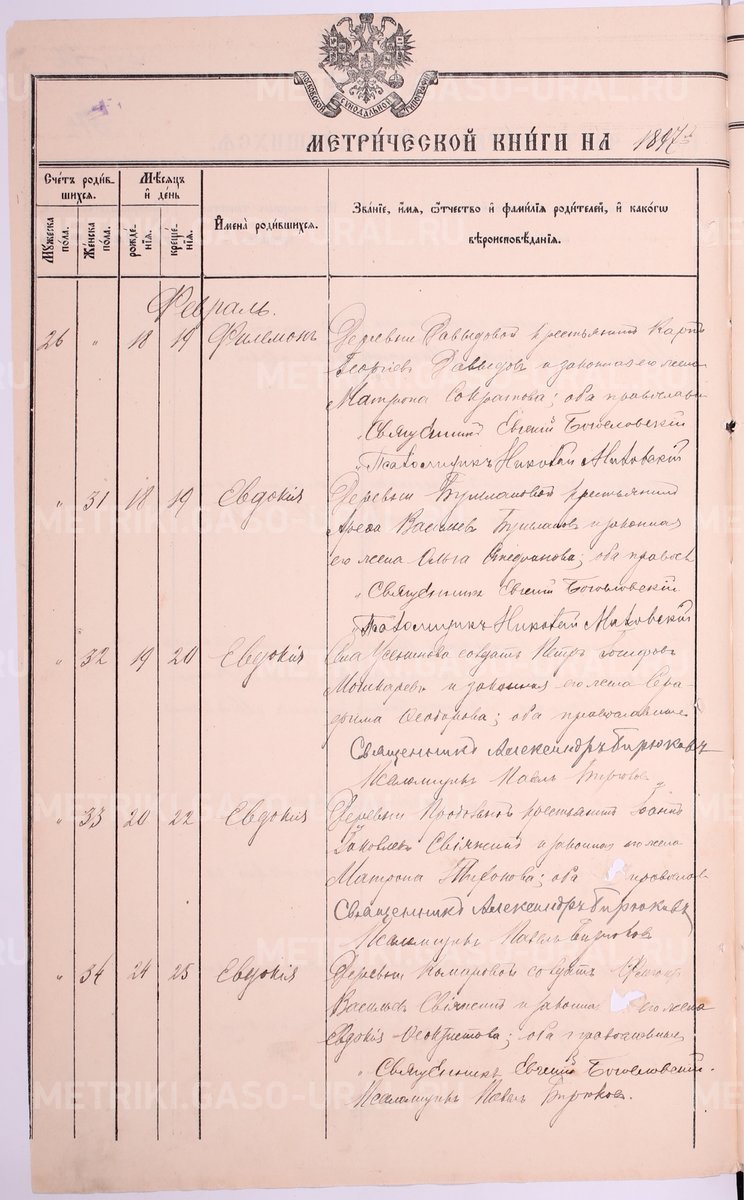 МОСКОВСКОЙ СѴНОДАЛЬНОЙ ТИПОГРАФІИ
МЕТРИ́ЧЕСКОЙ КНИ́ГИ НА 1897 г.
Сче́тъ роди́вшихся.
Мѣ́сяцъ и҆ де́нь
Мꙋ́жеска по́ла.
Же́нска по́ла.
рожде́нїѧ.
креще́нїѧ.
И҆мена̀ роди́вшихся.
Зва́нїе, и҆́мѧ, ѻ҆́тчество и҆ фами́лїѧ роди́телей, и҆ како́гѡ вѣроисповѣ́данїѧ.
Февраль.
26 " 18 19 Филемонъ Деревни Давыдовой крестьянинъ Карпъ
Георгіевъ Давыдовъ и законная его жена
Матрона Сократова; оба православн
Священникъ Евгеній Богословскій
Псаломщикъ Николай
" 31 18 19 Евдокія Деревни крестьянинъ
Васильевъ и законная
его жена Ольга Стефанова; оба правосл
Священникъ Евгеній Богословскій
Псаломщикъ Николай
" 32 19 20 Евдокія Села солдатъ Петръ Іосифовъ
и законная его жена Сера-
фима Ѳеодорова; оба православные
Священникъ Александръ Бирюковъ
Псаломщикъ Павелъ Бирюковъ
" 33 20 22 Евдокія Деревни крестьянинъ Іоаннъ
Іаковлевъ и законная его жена
Матрона Тихонова; оба православ
Священникъ Александръ Бирюковъ
Псаломщикъ Павелъ Бирюковъ
" 34 24 25 Евдокія Деревни Комаровой солдатъ
Васильевъ и законная его жена
Евдокія Ѳеоктистова; оба православные
Священникъ Евгеній Богословскій.
Псаломщикъ Павелъ Бирюковъ.
METRIKI.GASO-URAL.RU